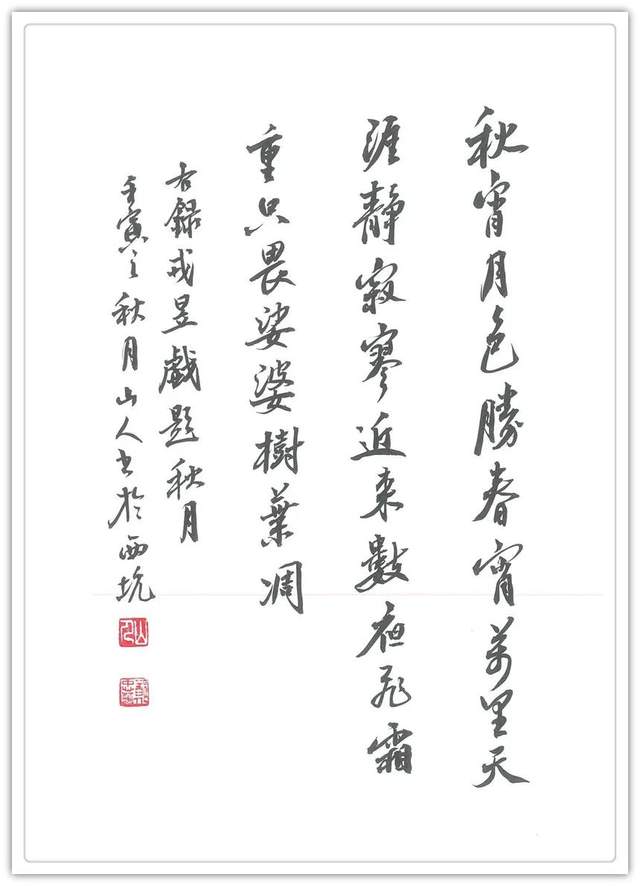 秋宵月色勝春宵萬里天
涯靜寂寥近来數夜飛霜
重只畏娑婆樹葉凋
右錄戎昱戲題秋月
壬寅之秋月山人書於西坑